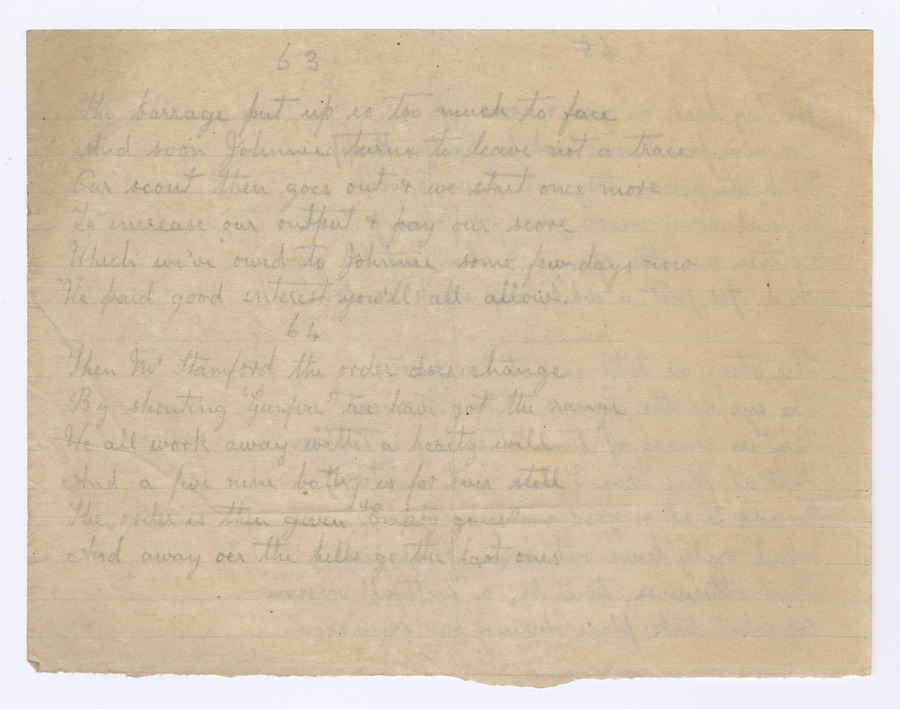 63
The barrage put up is too much to face
And soon Johnnie turns to leave not a trace
Our scout then goes out & we start once more
To increase our output & pay our score
Which we've owed to Johnnie some few days now
We paid good interest you'll all allow.
64
Then Mr Stamford the order does change
By shouting "Gunfire" we have got the range
We all work away with a hearty will
And a five nine batty is for ever still
The order is then given "Empty guns"
And away oer the hills go the last ones